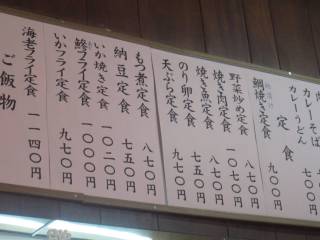 カレーそば
カレーうどん
定食
鯛焼き定食 九〇〇円
野菜炒め定食 八七〇円
焼き肉定食 一〇七〇円
焼き魚定食 一〇〇〇円
のり卵定食 七五〇円
天ぷら定食 九七〇円
もつ煮定食 八七〇円
納豆定食 七五〇円
いか焼き定食 一〇二〇円
鯵フライ定食 一〇〇〇円
いかフライ定食 九七〇円
海老フライ定食 一一四〇円
ご飯物